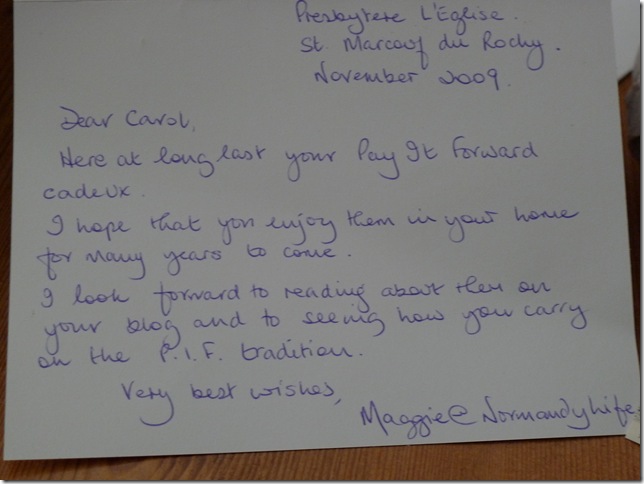 Presbytere L'Eglise.
St. Marcouf du Rochy.
November 2009.
Dear Carol,
Here at long last your Pay It Forward
cadeux.
I hope that you enjoy them in your home
for many years to come.
I look forward to reading about them on
your blog and to seeing how you carry
on the P.I.F. tradition.
Very best wishes,
Maggie@Normandylife